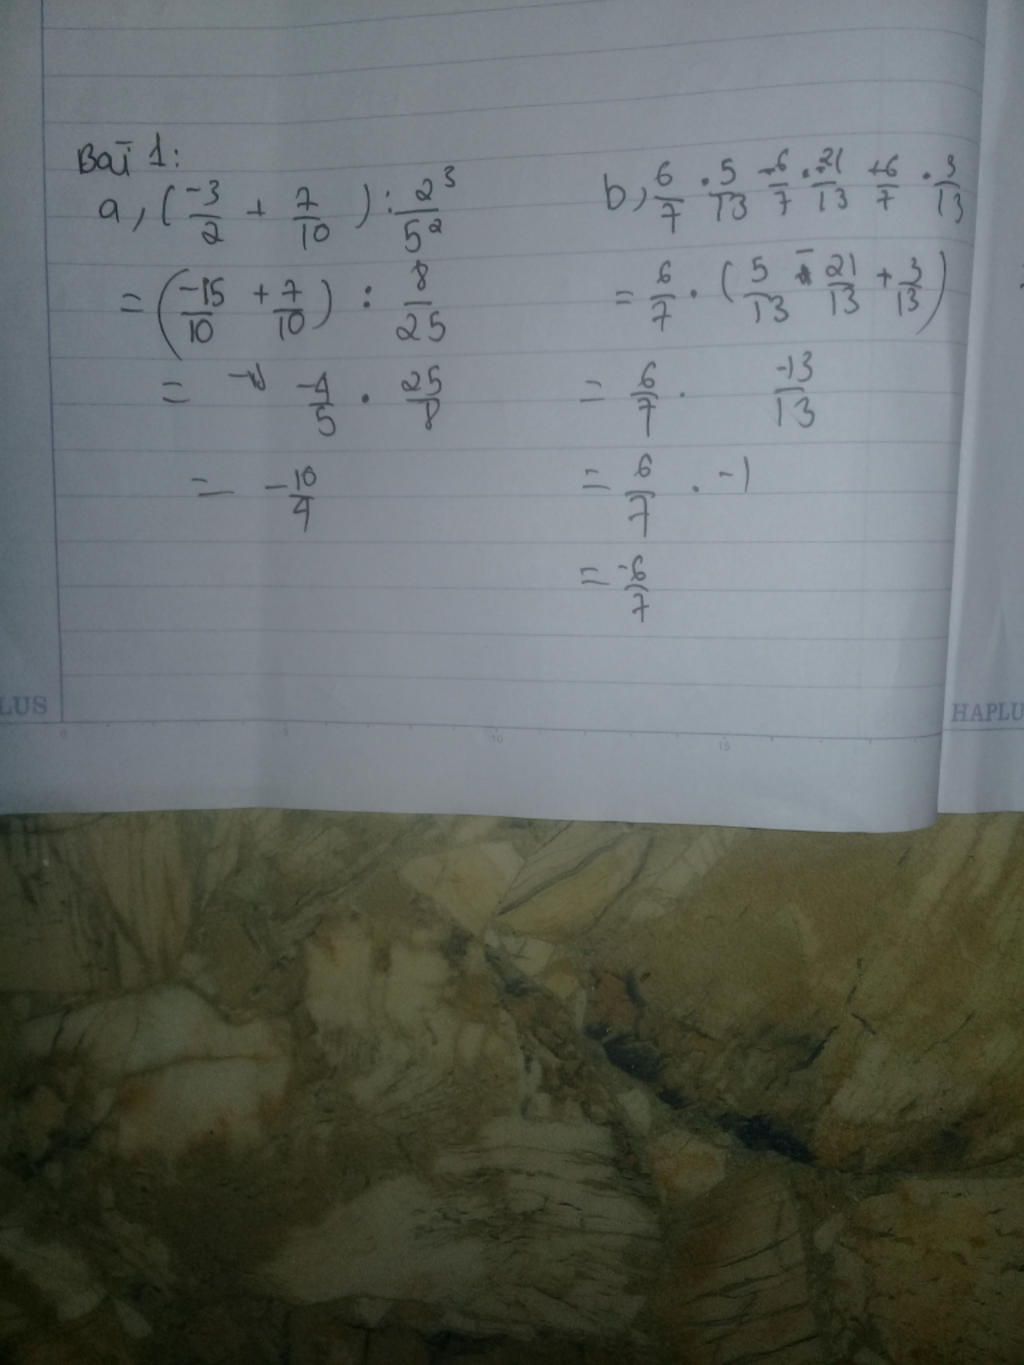 Bài 1:
a, (-3/2 + 7/10) : 2³/5²
= (-15/10 + 7/10) : 8/25
= -4/5 . 25/8
= -10/4
b, 6/7 . 5/13 - 6/7 . 21/13 + 6/7 . 3/13
= 6/7 . (5/13 - 21/13 + 3/13)
= 6/7 . -13/13
= 6/7 . -1
= -6/7
LUS
5
10
15
HAPLU